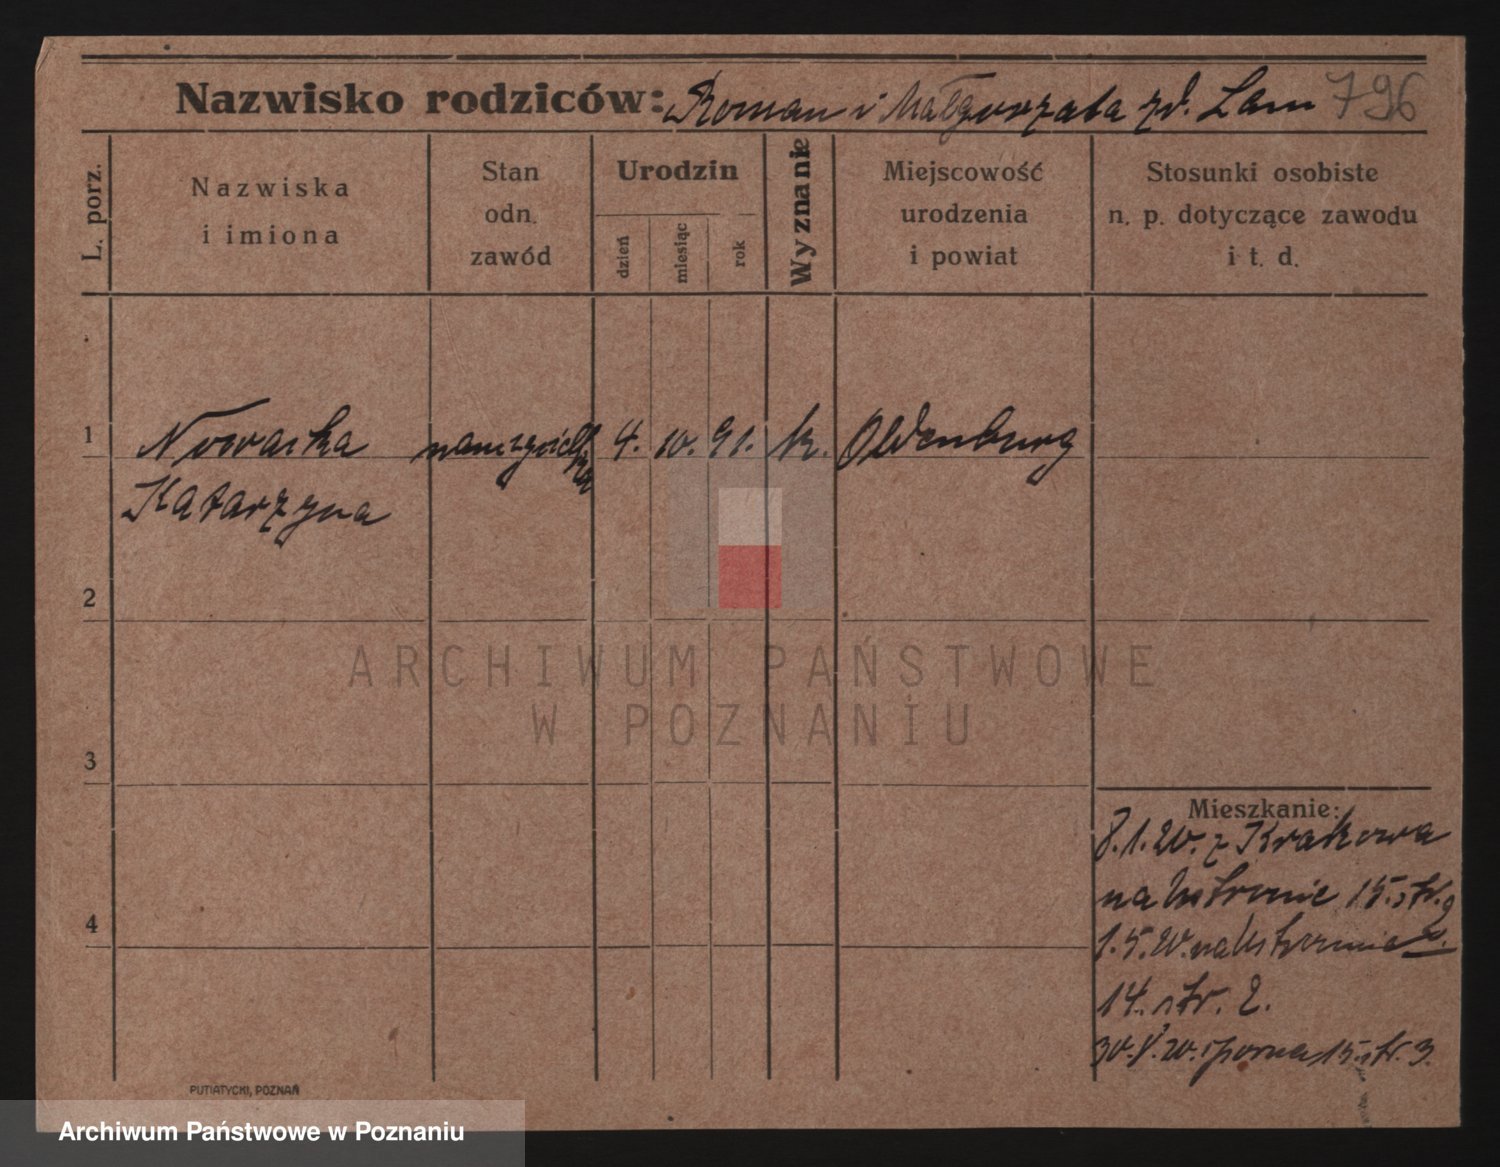 Nazwisko rodziców: Roman i Małgorzata zd. Lam 796
L. porz.
Nazwiska
i imiona
Stan
odn.
zawód
Urodzin
dzień
miesiąc
rok
Wyznanie
Miejscowość
urodzenia
i powiat
Stosunki osobiste
n. p. dotyczące zawodu
i t. d.
1 Nowacka nauczycielka 4. 10. 91. k. Oldenburg
Katarzyna
2
3
4
Mieszkanie:
8.1.20. z Krakowa
na Ustronie 15. str. 9
1.5.20. na Ustronie
14. str. 2.
30.V.20. 15. str. 3.
PUTIATYCKI, POZNAŃ
ARCHIWUM PAŃSTWOWE
W POZNANIU
Archiwum Państwowe w Poznaniu